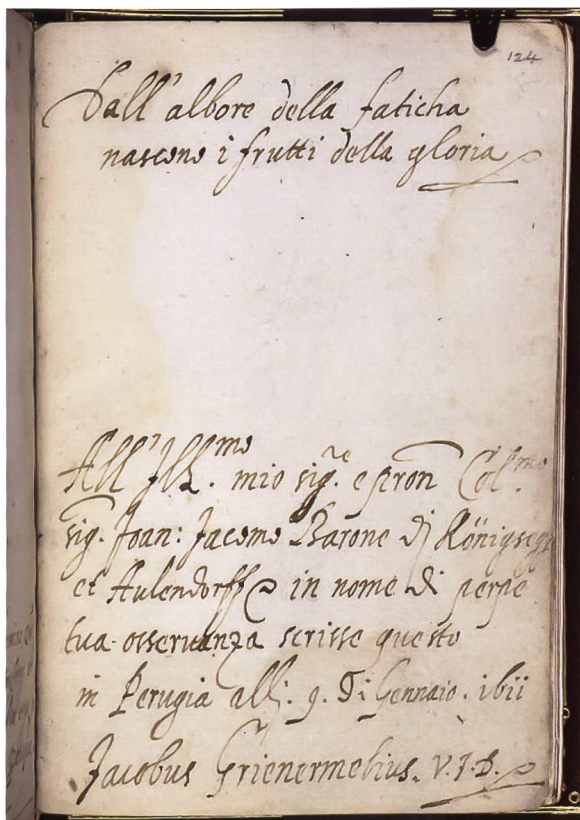 124
Dall'albore della faticha
nascono i frutti della gloria
All'Ill.mo mio sig.re e pron Col.mo
sig. Joan: Jacomo Barone di Königsegg
et Aulendorff in nome di perpe
tua osservanza scrisse questo
in Perugia alli. 9. Di Gennaio. 1611
Jacobus V.J.D.